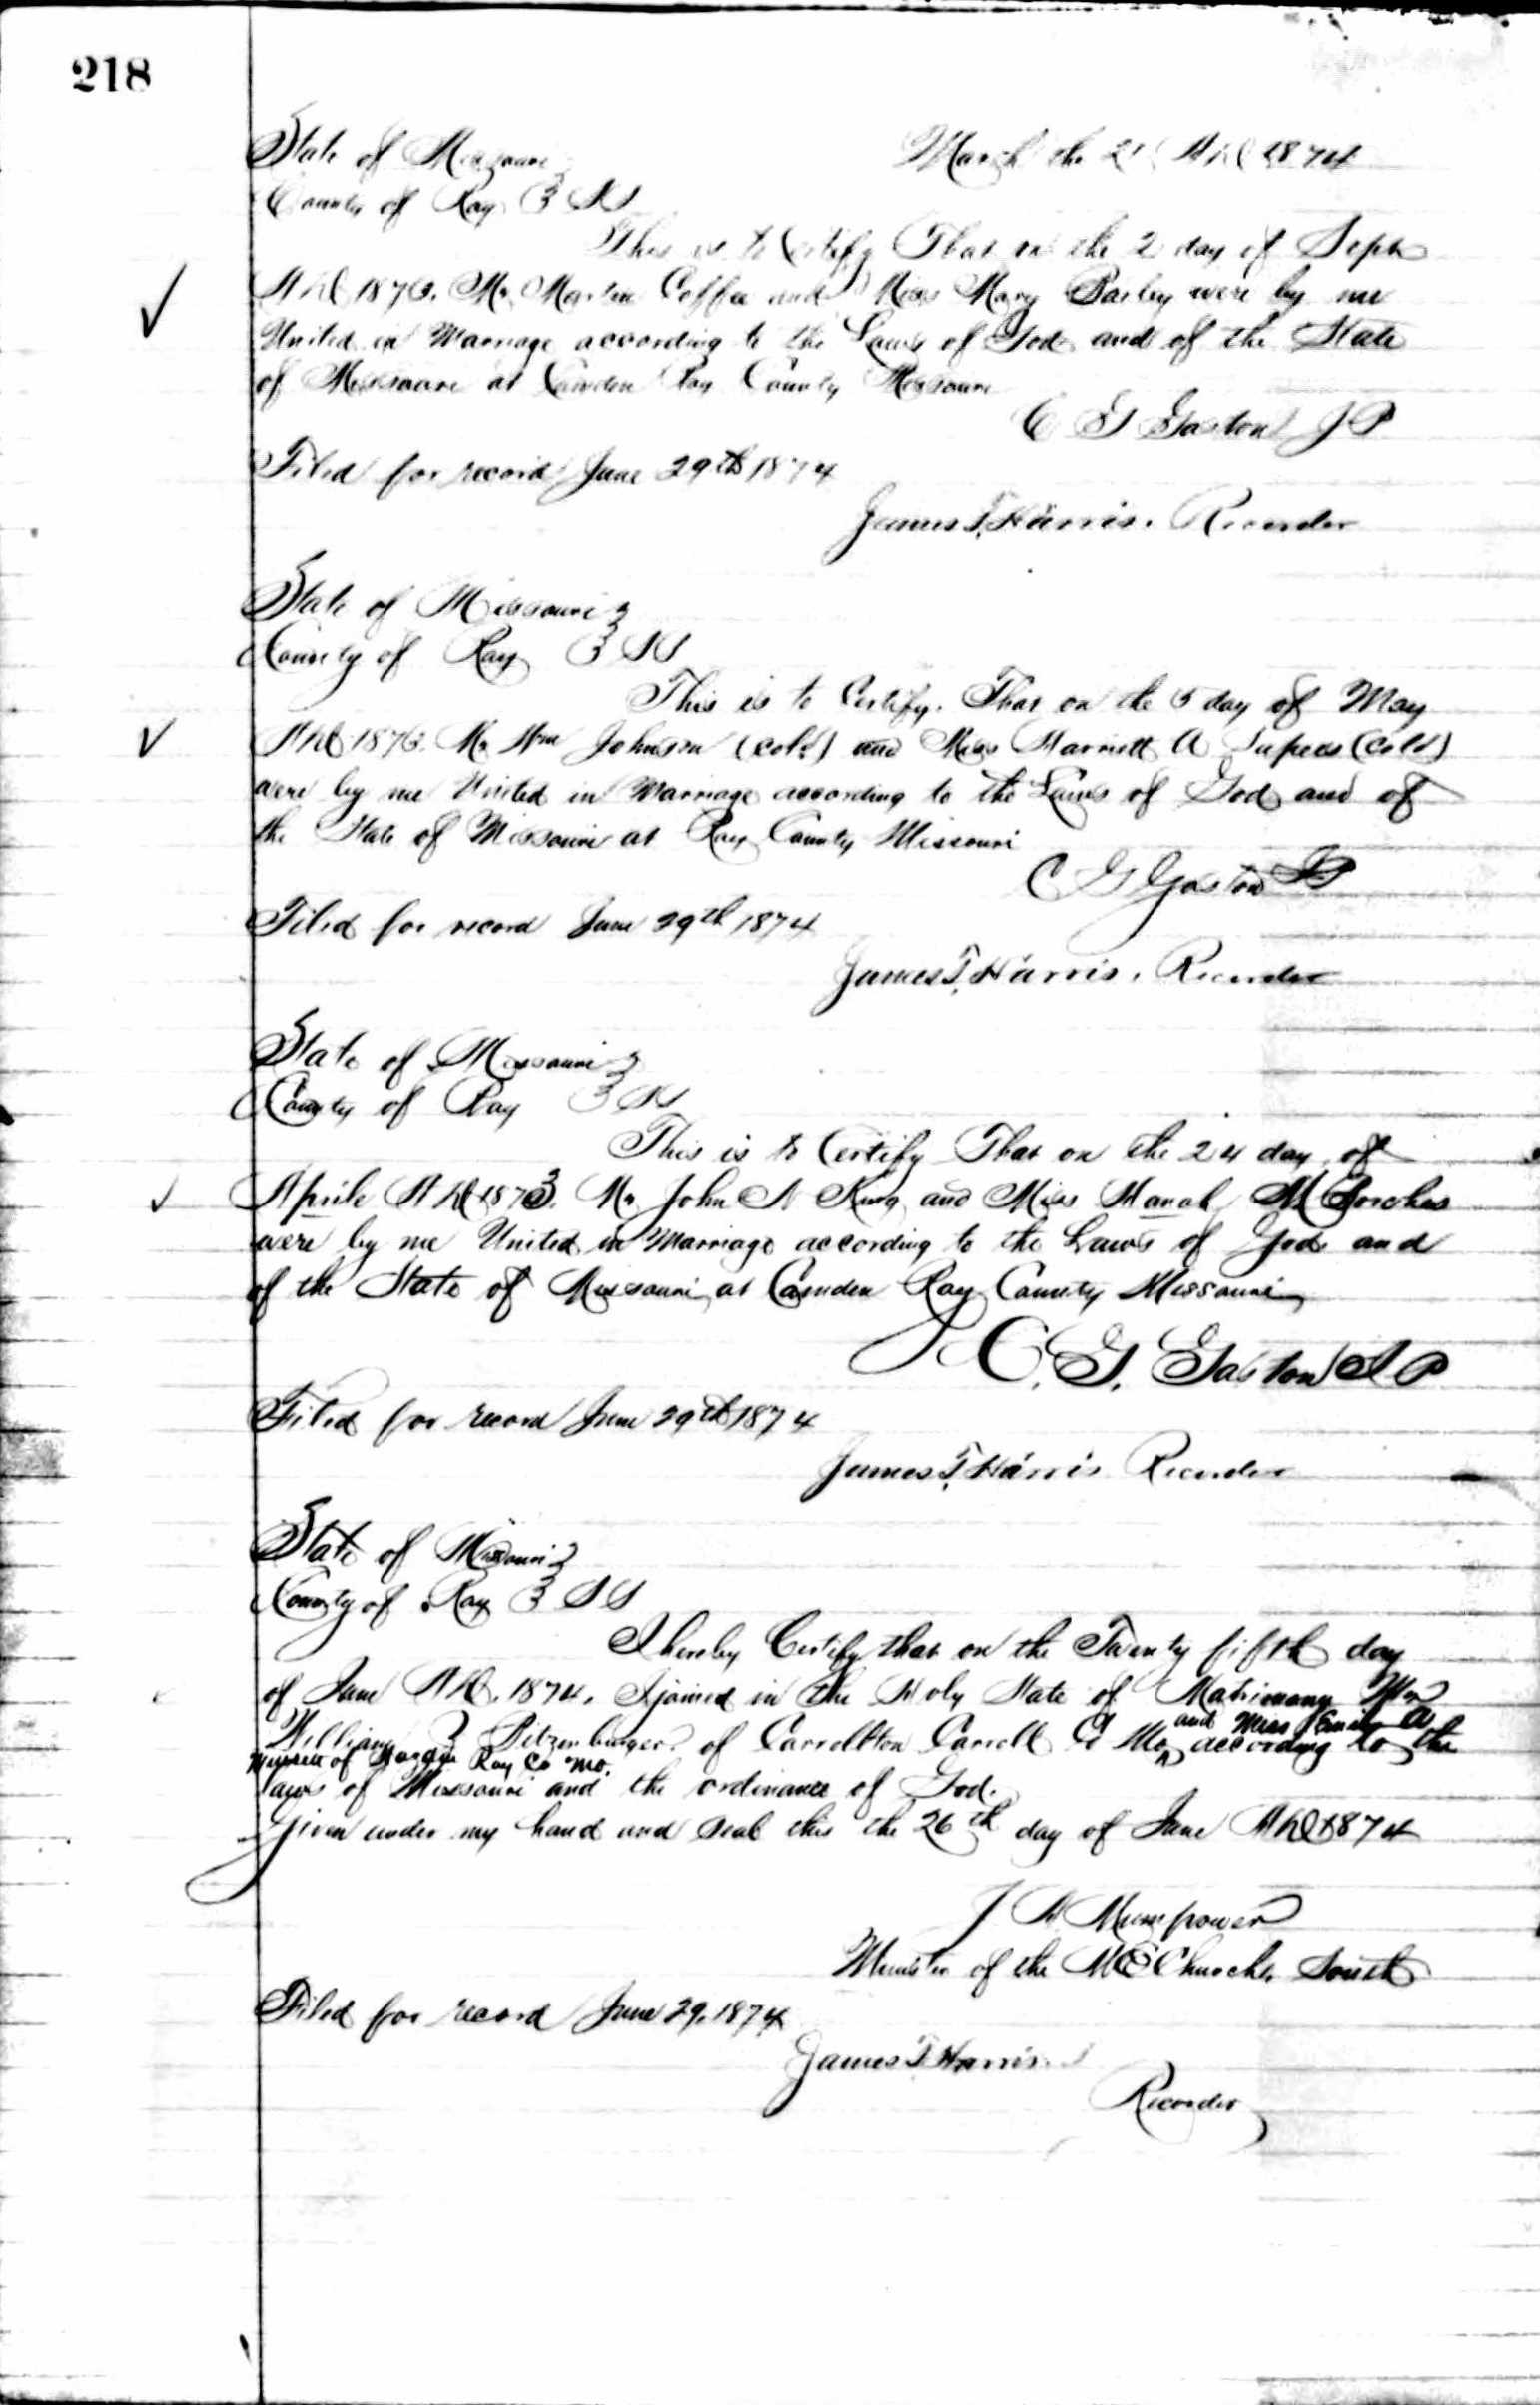 218
State of Missouri } March the 21 AD 1874
County of Ray } SS
This is to Certify That on the 2 day of Sept
AD 1873. Mr Martin Coffee and Miss Mary Bailey were by me
United in Marriage according to the Laws of God and of the State
of Missouri at Camden Ray County Missouri
C G Gaston J P
Filed for record June 29th 1874
James T. Harris. Recorder
State of Missouri }
County of Ray } SS
This is to Certify. That on the 5 day of May
AD 1873. Mr Wm Johnson (cold) and Miss Harriett A (cold)
were by me United in Marriage according to the Laws of God and of
the State of Missouri at Ray County Missouri
C G Gaston JP
Filed for record June 29th 1874
James T. Harris. Recorder
State of Missouri }
County of Ray } SS
This is to Certify That on the 24 day of
Aprile AD 1873. Mr John N King and Miss M
were by me United in Marriage according to the Laws of God and
of the State of Missouri at Camden Ray County Missouri
C. G. Gaston J P
Filed for record June 29th 1874
James T. Harris Recorder
State of Missouri }
County of Ray } SS
I hereby Certify that on the Twenty fifth day
of June AD. 1874. I joined in the Holy State of Matrimony Mr
and Miss Emily A
William Pitzenbarger of Carrollton Carroll Co Mo ^ according to the
of Ray Co Mo.
laws of Missouri and the ordinance of God.
Given under my hand and seal this the 26th day of June AD 1874
J H Mumpower
Minister of the M E Church. South
Filed for record June 29. 1874
James T Harris
Recorder